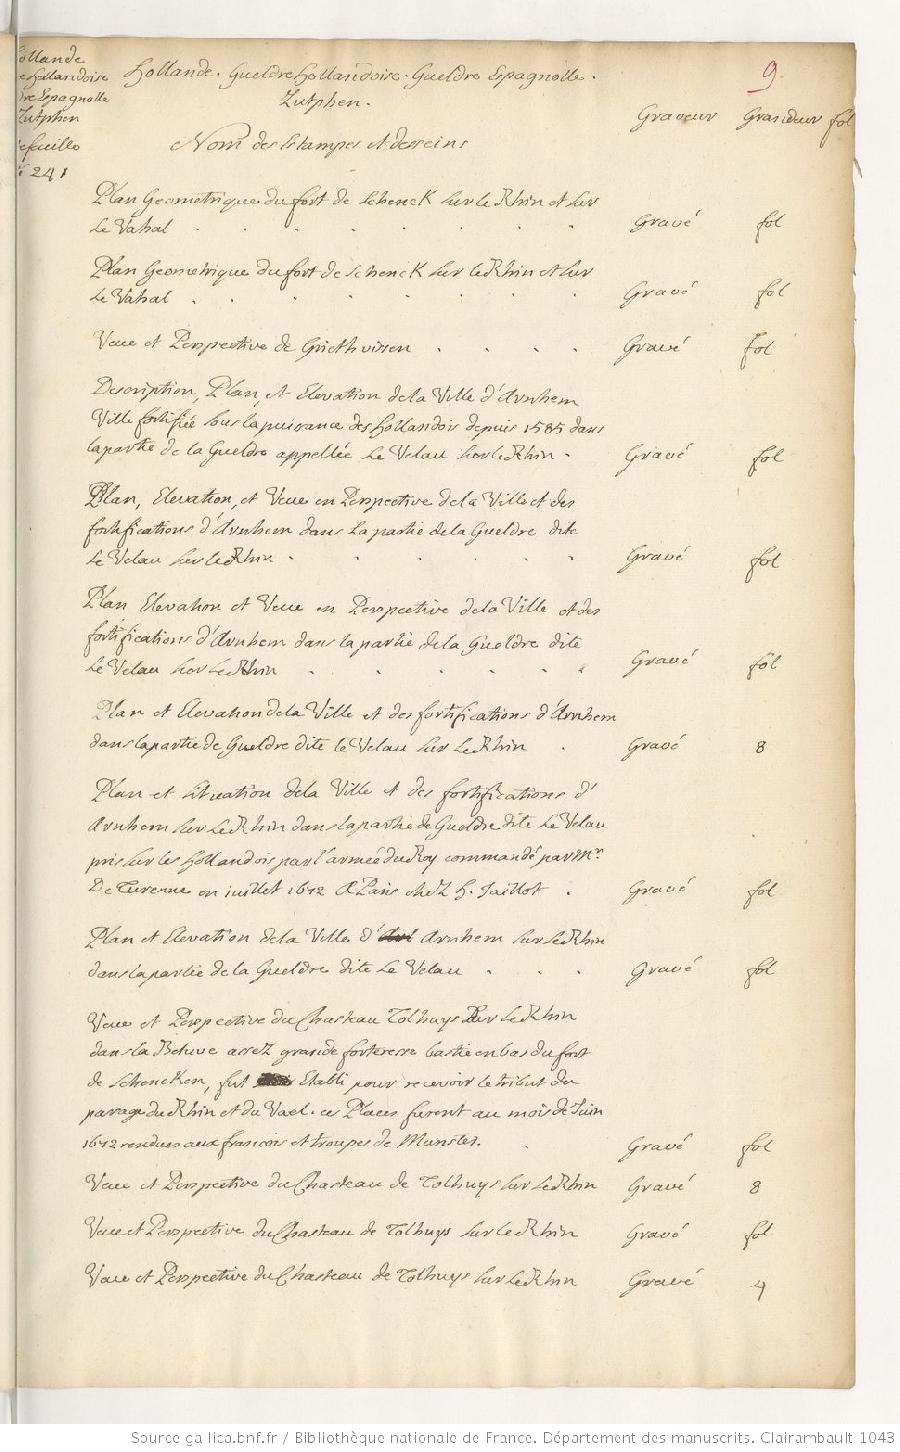 ollande
e hollandoise
dre Espagnolle
Zutphen
efeuille
241
hollande. Gueldre hollandoise. Gueldre Espagnolle.
Zutphen.
9.
Graveur Grandeur fol
Nom des Estampes et desseins
Plan Geometrique du fort de Schenck sur le Rhin et sur
Le Vahal . . . . . . . . Gravé fol
Plan Geometrique du fort de Schenck sur le Rhin et sur
Le Vahal . . . . . . . . Gravé fol
Veue et Perspective de Griethuissen . . . . Gravé fol
Description, Plan, et Elevation de la Ville d'Arnhem
Ville fortifiée sous la puissance des hollandois depuis 1585 dans
la partie de la Gueldre appellée Le Velau sur le Rhin . Gravé fol
Plan, Elevation, et Veue en Perspective de la Ville et des
fortifications d'Arnhem dans la partie de la Gueldre dite
Le Velau sur le Rhin . . . . . . Gravé fol
Plan Elevation et Veue en Perspective de la Ville et des
fortifications d'Arnhem dans la partie de la Gueldre dite
Le Velau sur Le Rhin . . . . . . Gravé fol
Plan et Elevation de la Ville et des fortifications d'Arnhem
dans la partie de Gueldre dite le Velau sur Le Rhin . Gravé 8
Plan et situation de la Ville et des fortifications d'
Arnhem sur Le Rhin dans la partie de Gueldre dite Le Velau
pris sur les hollandois par l'armée du Roy commandé par Mr.
De Turenne en juillet 1672 A Paris chez H. Jaillot . Gravé fol
Plan et Elevation de la Ville d' Arnhem sur le Rhin
dans la partie de la Gueldre dite Le Velau . . . Gravé fol
Veue et Perspective du Chasteau Tolhuys sur Le Rhin
dans la Betuve assez grande forteresse bastie en bas du fort
de Schencken, fut Etabli pour recevoir le tribut du
passage du Rhin et du Vael. ces Places furent au mois de Juin
1672 rendues aux francois et troupes de Munster. . Gravé fol
Veue et Perspective du Chasteau de Tolhuys sur Le Rhin Gravé 8
Veue et Perspective du Chasteau de Tolhuys sur le Rhin Gravé fol
Veue et Perspective du Chasteau de Tolhuys sur Le Rhin Gravé 4
Source gallica.bnf.fr / Bibliothèque nationale de France. Département des manuscrits. Clairambault 1043